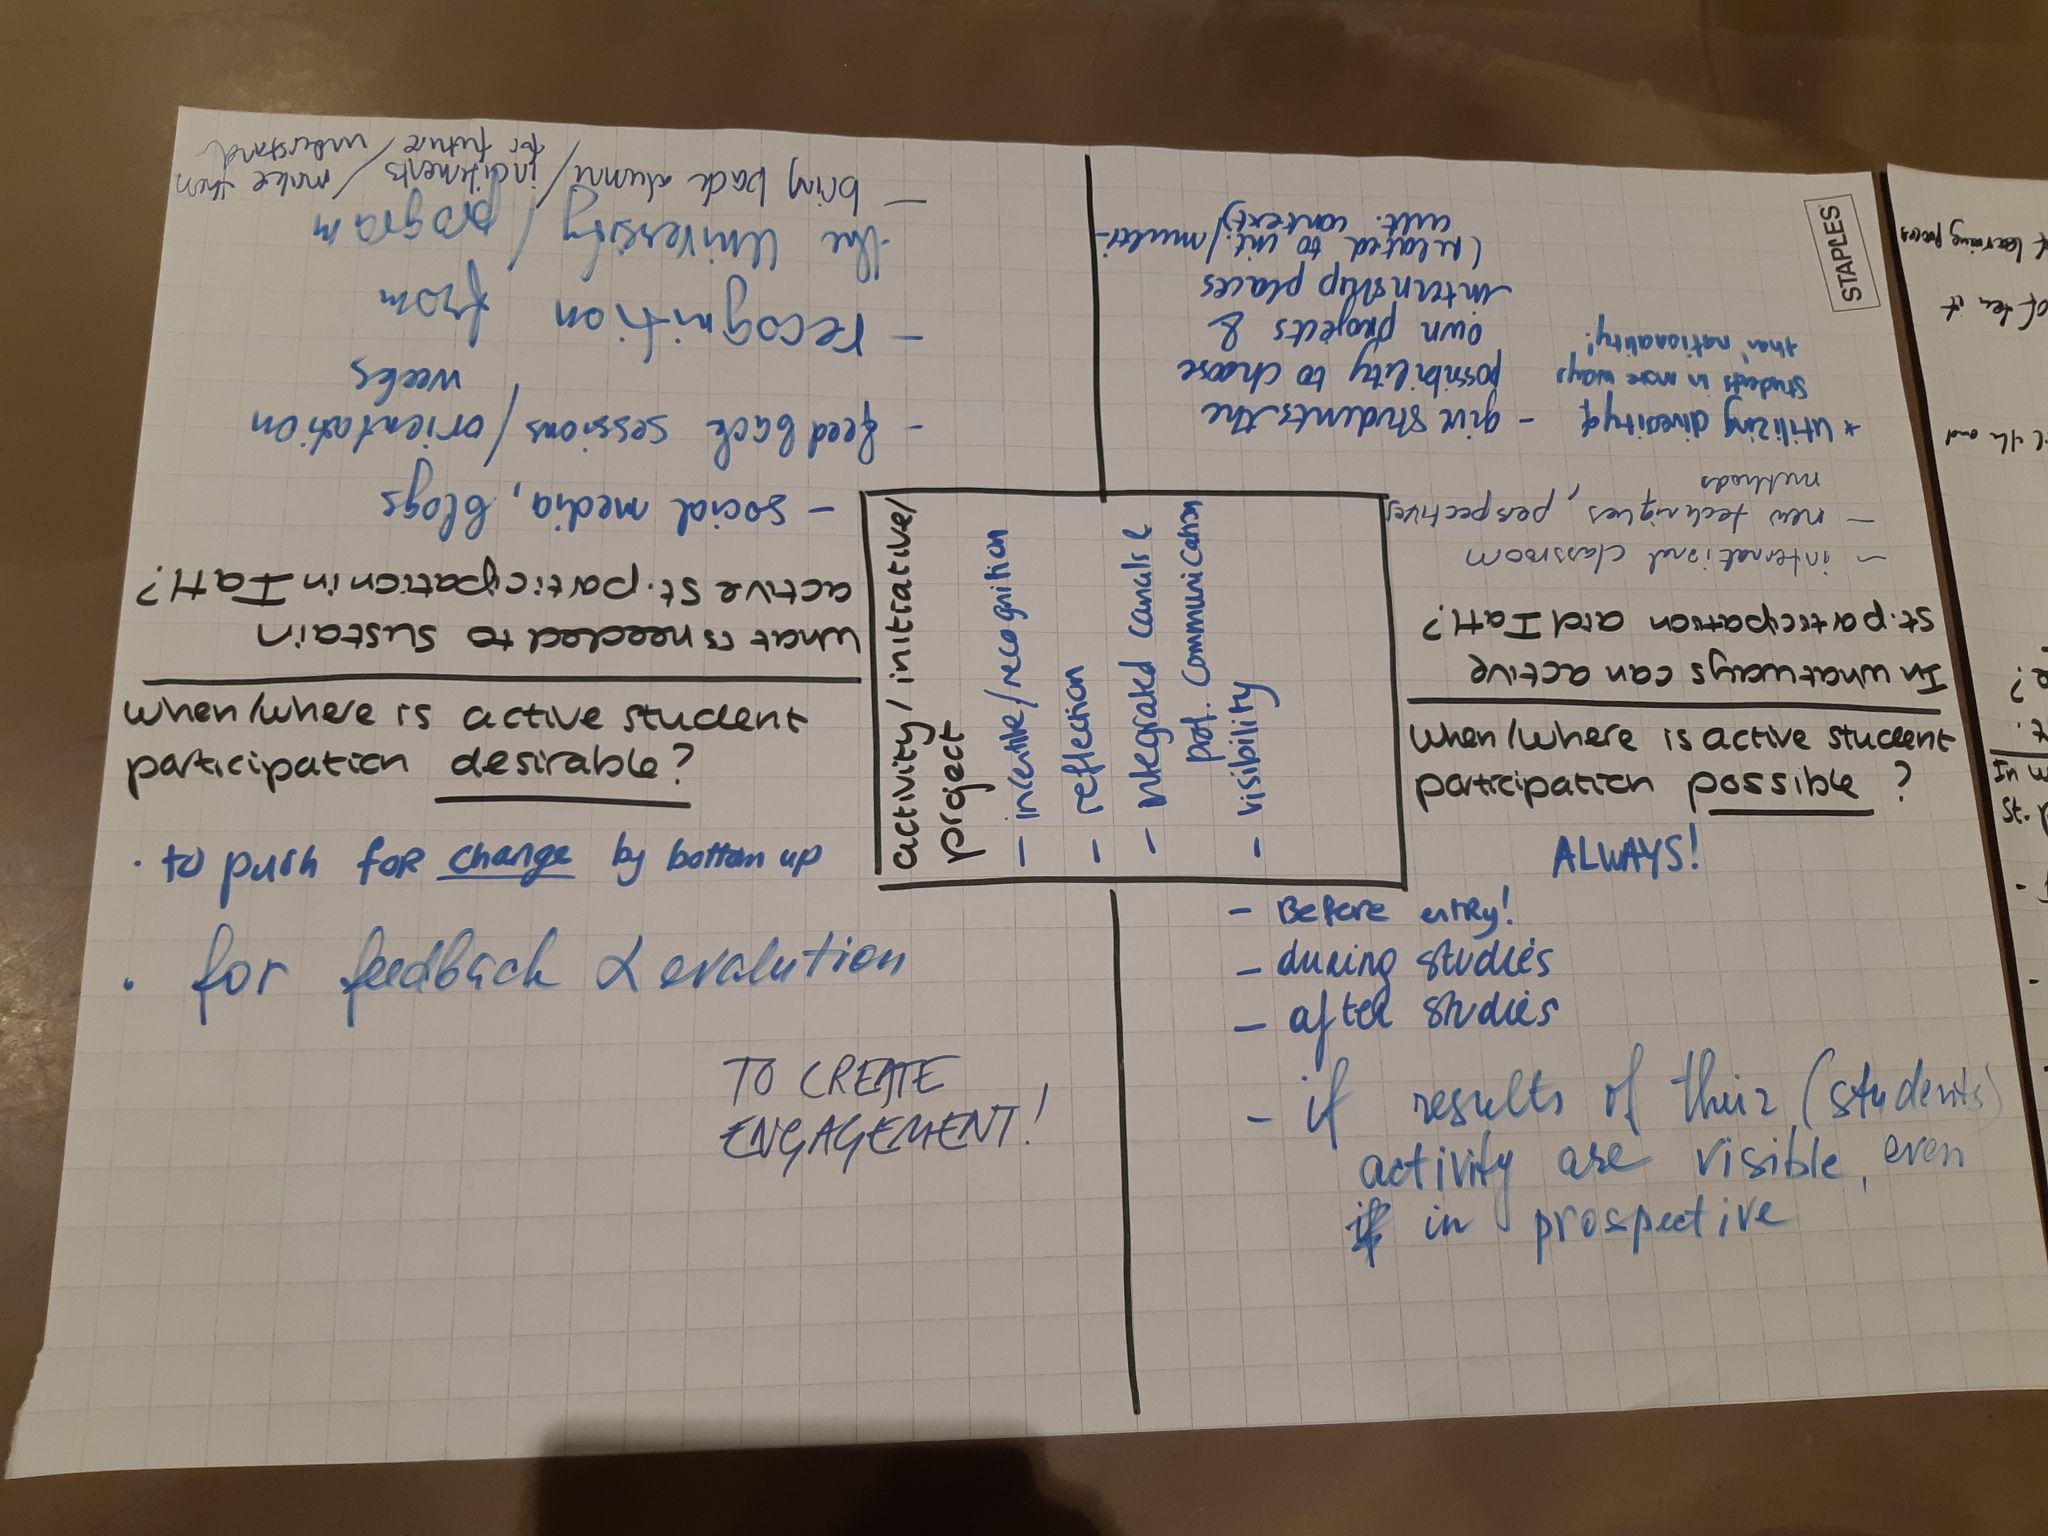 What is needed to sustain
active st. participation in IatH?
- social media, blogs
- feedback sessions / orientation
weeks
- recognition from
the University / program
- bring back alumni / incitements / make them
for future / understand
In what ways can active
st. participation aid IatH?
- international classroom
- new techniques, perspectives
methods
* utilizing diversity of
students in more ways
than 'nationality'!
- give students the
possibility to choose
own projects &
internship places
(related to int./multi-
cult. context)
STAPLES
activity / initiative /
project
- incentive / recognition
- reflection
- integrated canals &
prof. communication
- visibility
When/where is active student
participation desirable?
• to push for change by bottom up
• for feedback & evalution
TO CREATE
ENGAGEMENT!
When/where is active student
participation possible?
ALWAYS!
- Before entry!
- during studies
- after studies
- if results of their (students)
activity are visible, even
in prospective
of learning